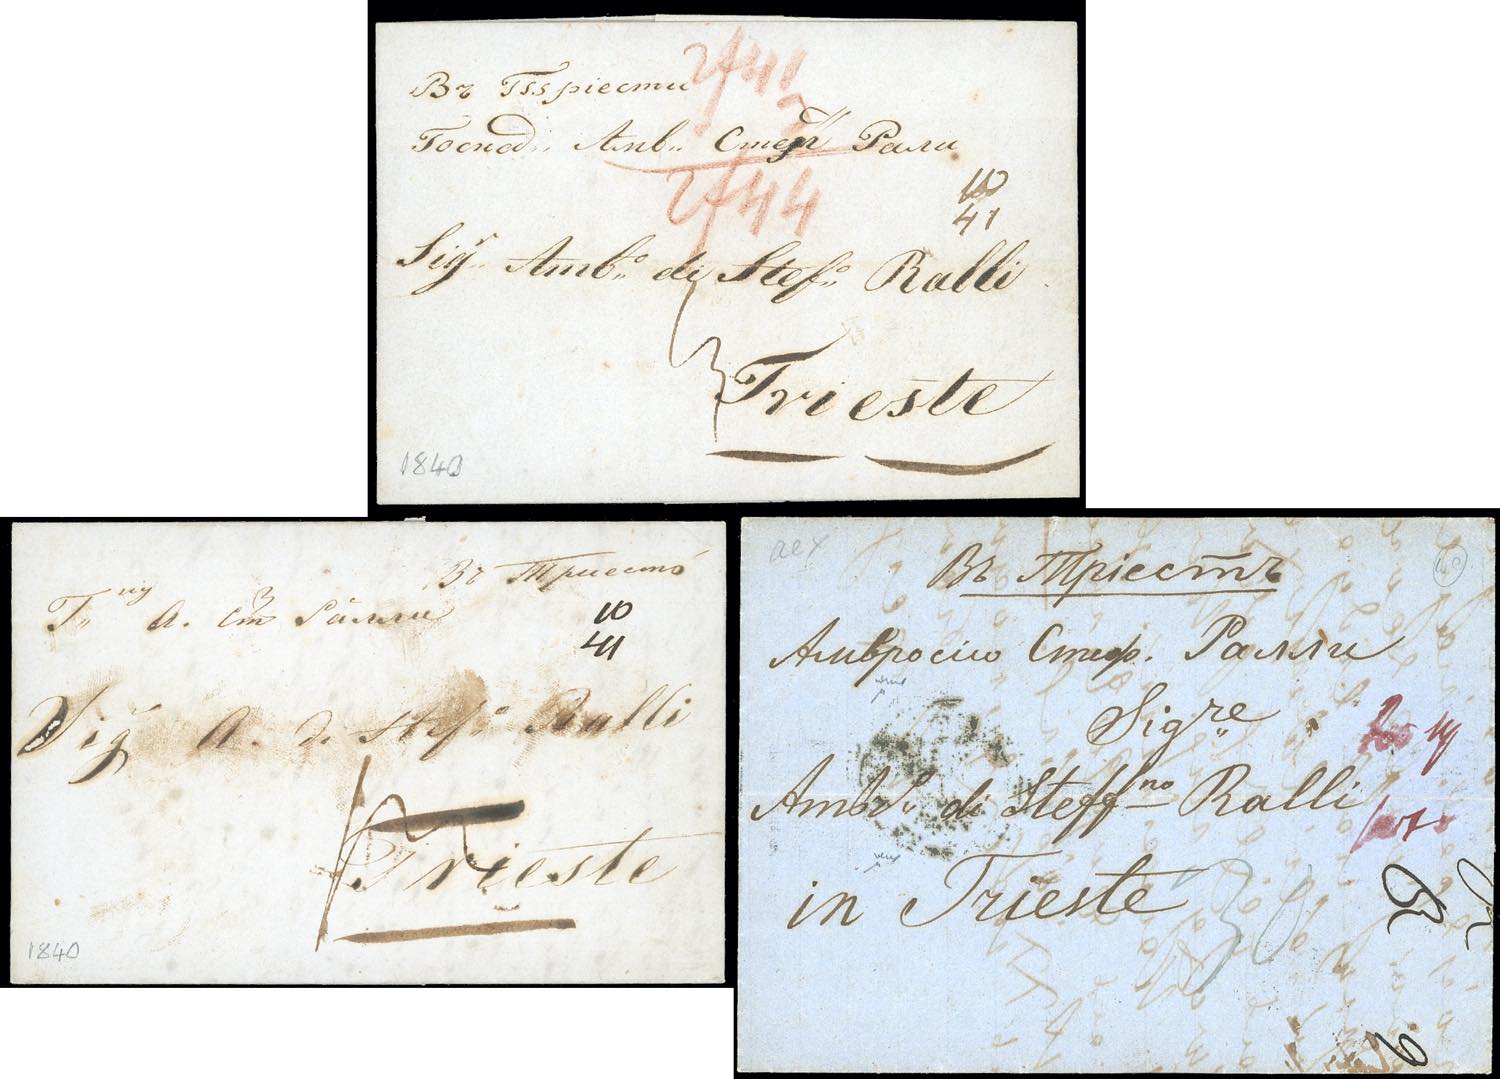 Въ Тріести
2f41
3
Господ. Амв. Стеф. Рали
2f44
10
41
Sigr. Ambo. di Stefo. Ralli
Trieste
1840
Въ Триестъ
Гну А. Ст. Ралли
10
41
Sigr A. di Stefo. Ralli
Trieste
1840
aex
40
Въ Тріестъ
Амвросію Стеф. Ралли
Sigre
Ambro. di Steffno Ralli
in Trieste
30